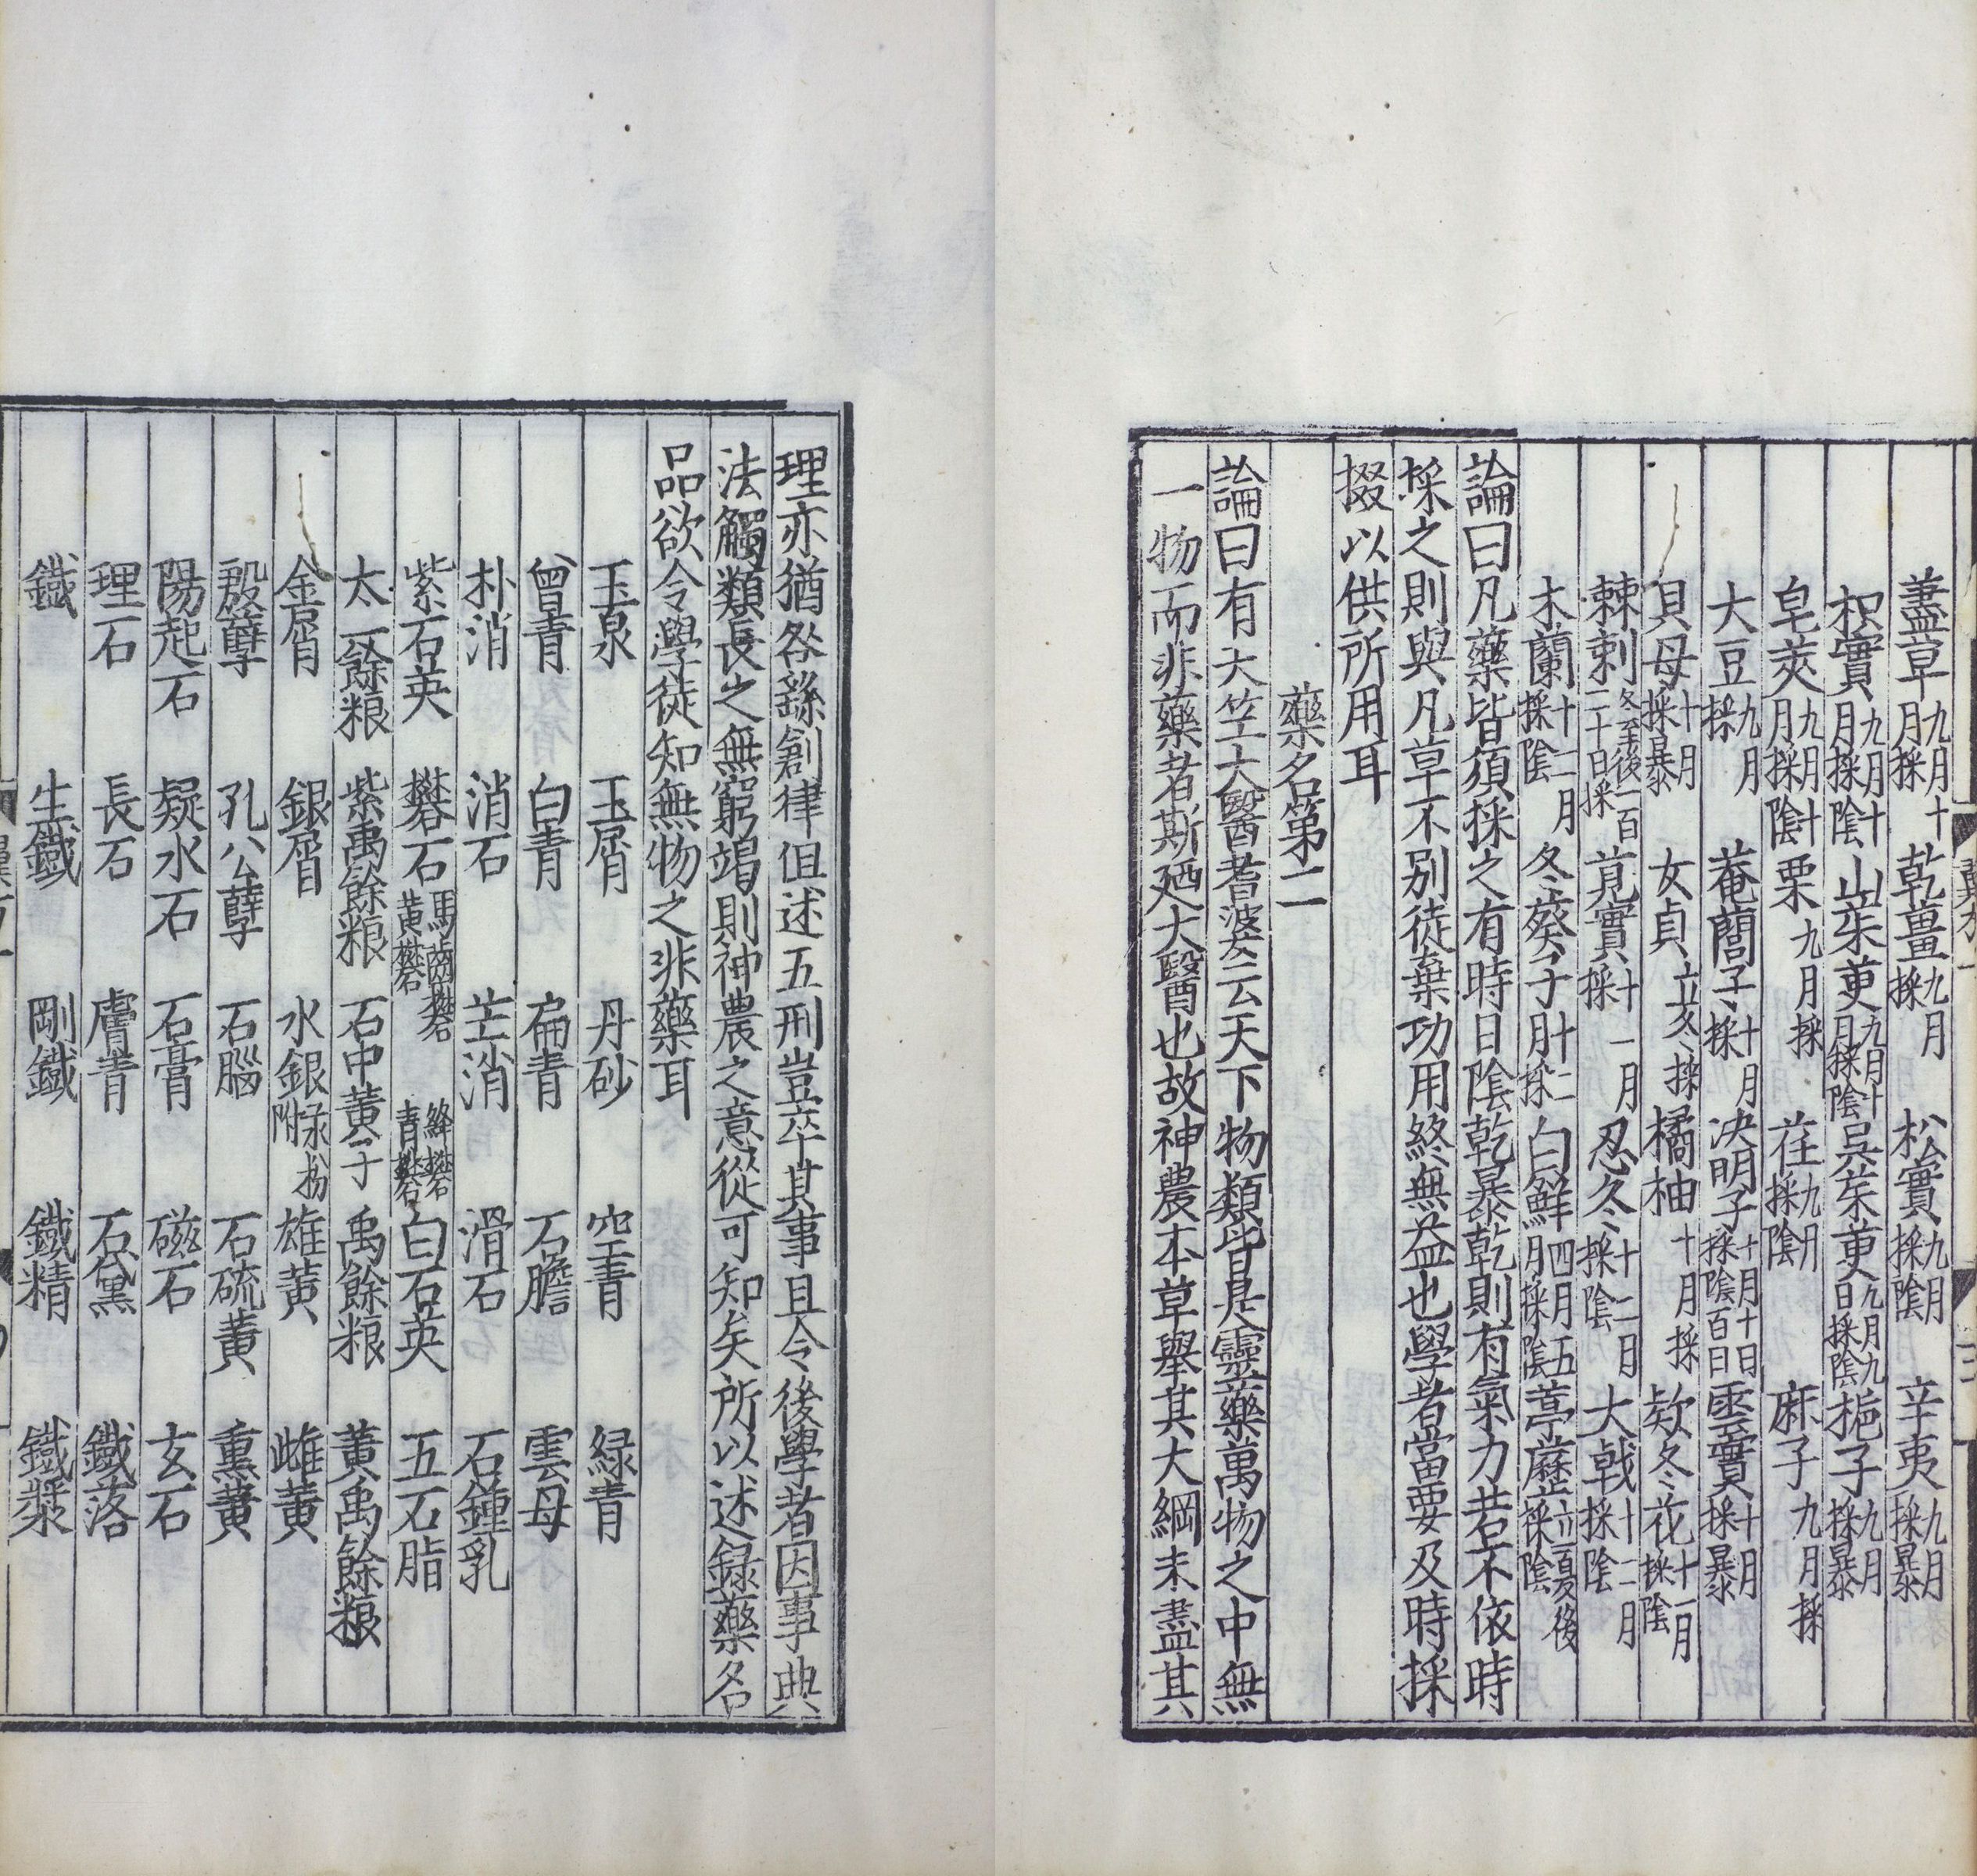 藎草九月十月採　乾薑九月採　松實九月採陰　辛夷九月採暴
枳實九月十月採陰　山茱萸九月十月採陰　吳茱萸九月九日採陰　梔子九月採暴
皂莢九月十月採陰　栗九月採　荏九月採陰　麻子九月採
大豆九月採　菴䕡子十月採　决明子十月十日採陰百日　雲實十月採暴
貝母十月採暴　女貞立冬採　橘柚十月採　欵冬花十一月採陰
棘刺冬至後一百二十日採　莧實十一月採　忍冬十二月採陰　大戟十二月採陰
木蘭十二月採陰　冬葵子十二月採　白鮮四月五月採陰　葶藶立夏後採陰
論曰凡藥皆須採之有時日陰乾暴乾則有氣力若不依時
採之則與凡草不别徒棄功用終無益也學者當要及時採
掇以供所用耳
藥名第二
論曰有大竺大醫耆婆云天下物類皆是靈藥萬物之中無
一物而非藥者斯廼大醫也故神農本草舉其大綱未盡其
理亦猶咎繇創律但述五刑豈卒其事且令後學者因事典
法觸類長之無窮竭則神農之意從可知矣所以述録藥名
品欲令學徒知無物之非藥耳
玉泉　玉屑　丹砂　空青　緑青
曾青　白青　扁青　石膽　雲母
朴消　消石　芒消　滑石　石鍾乳
紫石英　礬石馬齒礬黄礬　絳礬青礬　白石英　五石脂
太一餘粮　紫禹餘粮　石中黄子　禹餘粮　黄禹餘粮
金屑　銀屑　水銀永粉附　雄黄　雌黄
殷孽　孔公孽　石腦　石硫黄　熏黄
陽起石　凝水石　石膏　磁石　玄石
理石　長石　膚青　石黛　鐵落
鐵　生鐵　剛鐵　鐵精　鐵漿